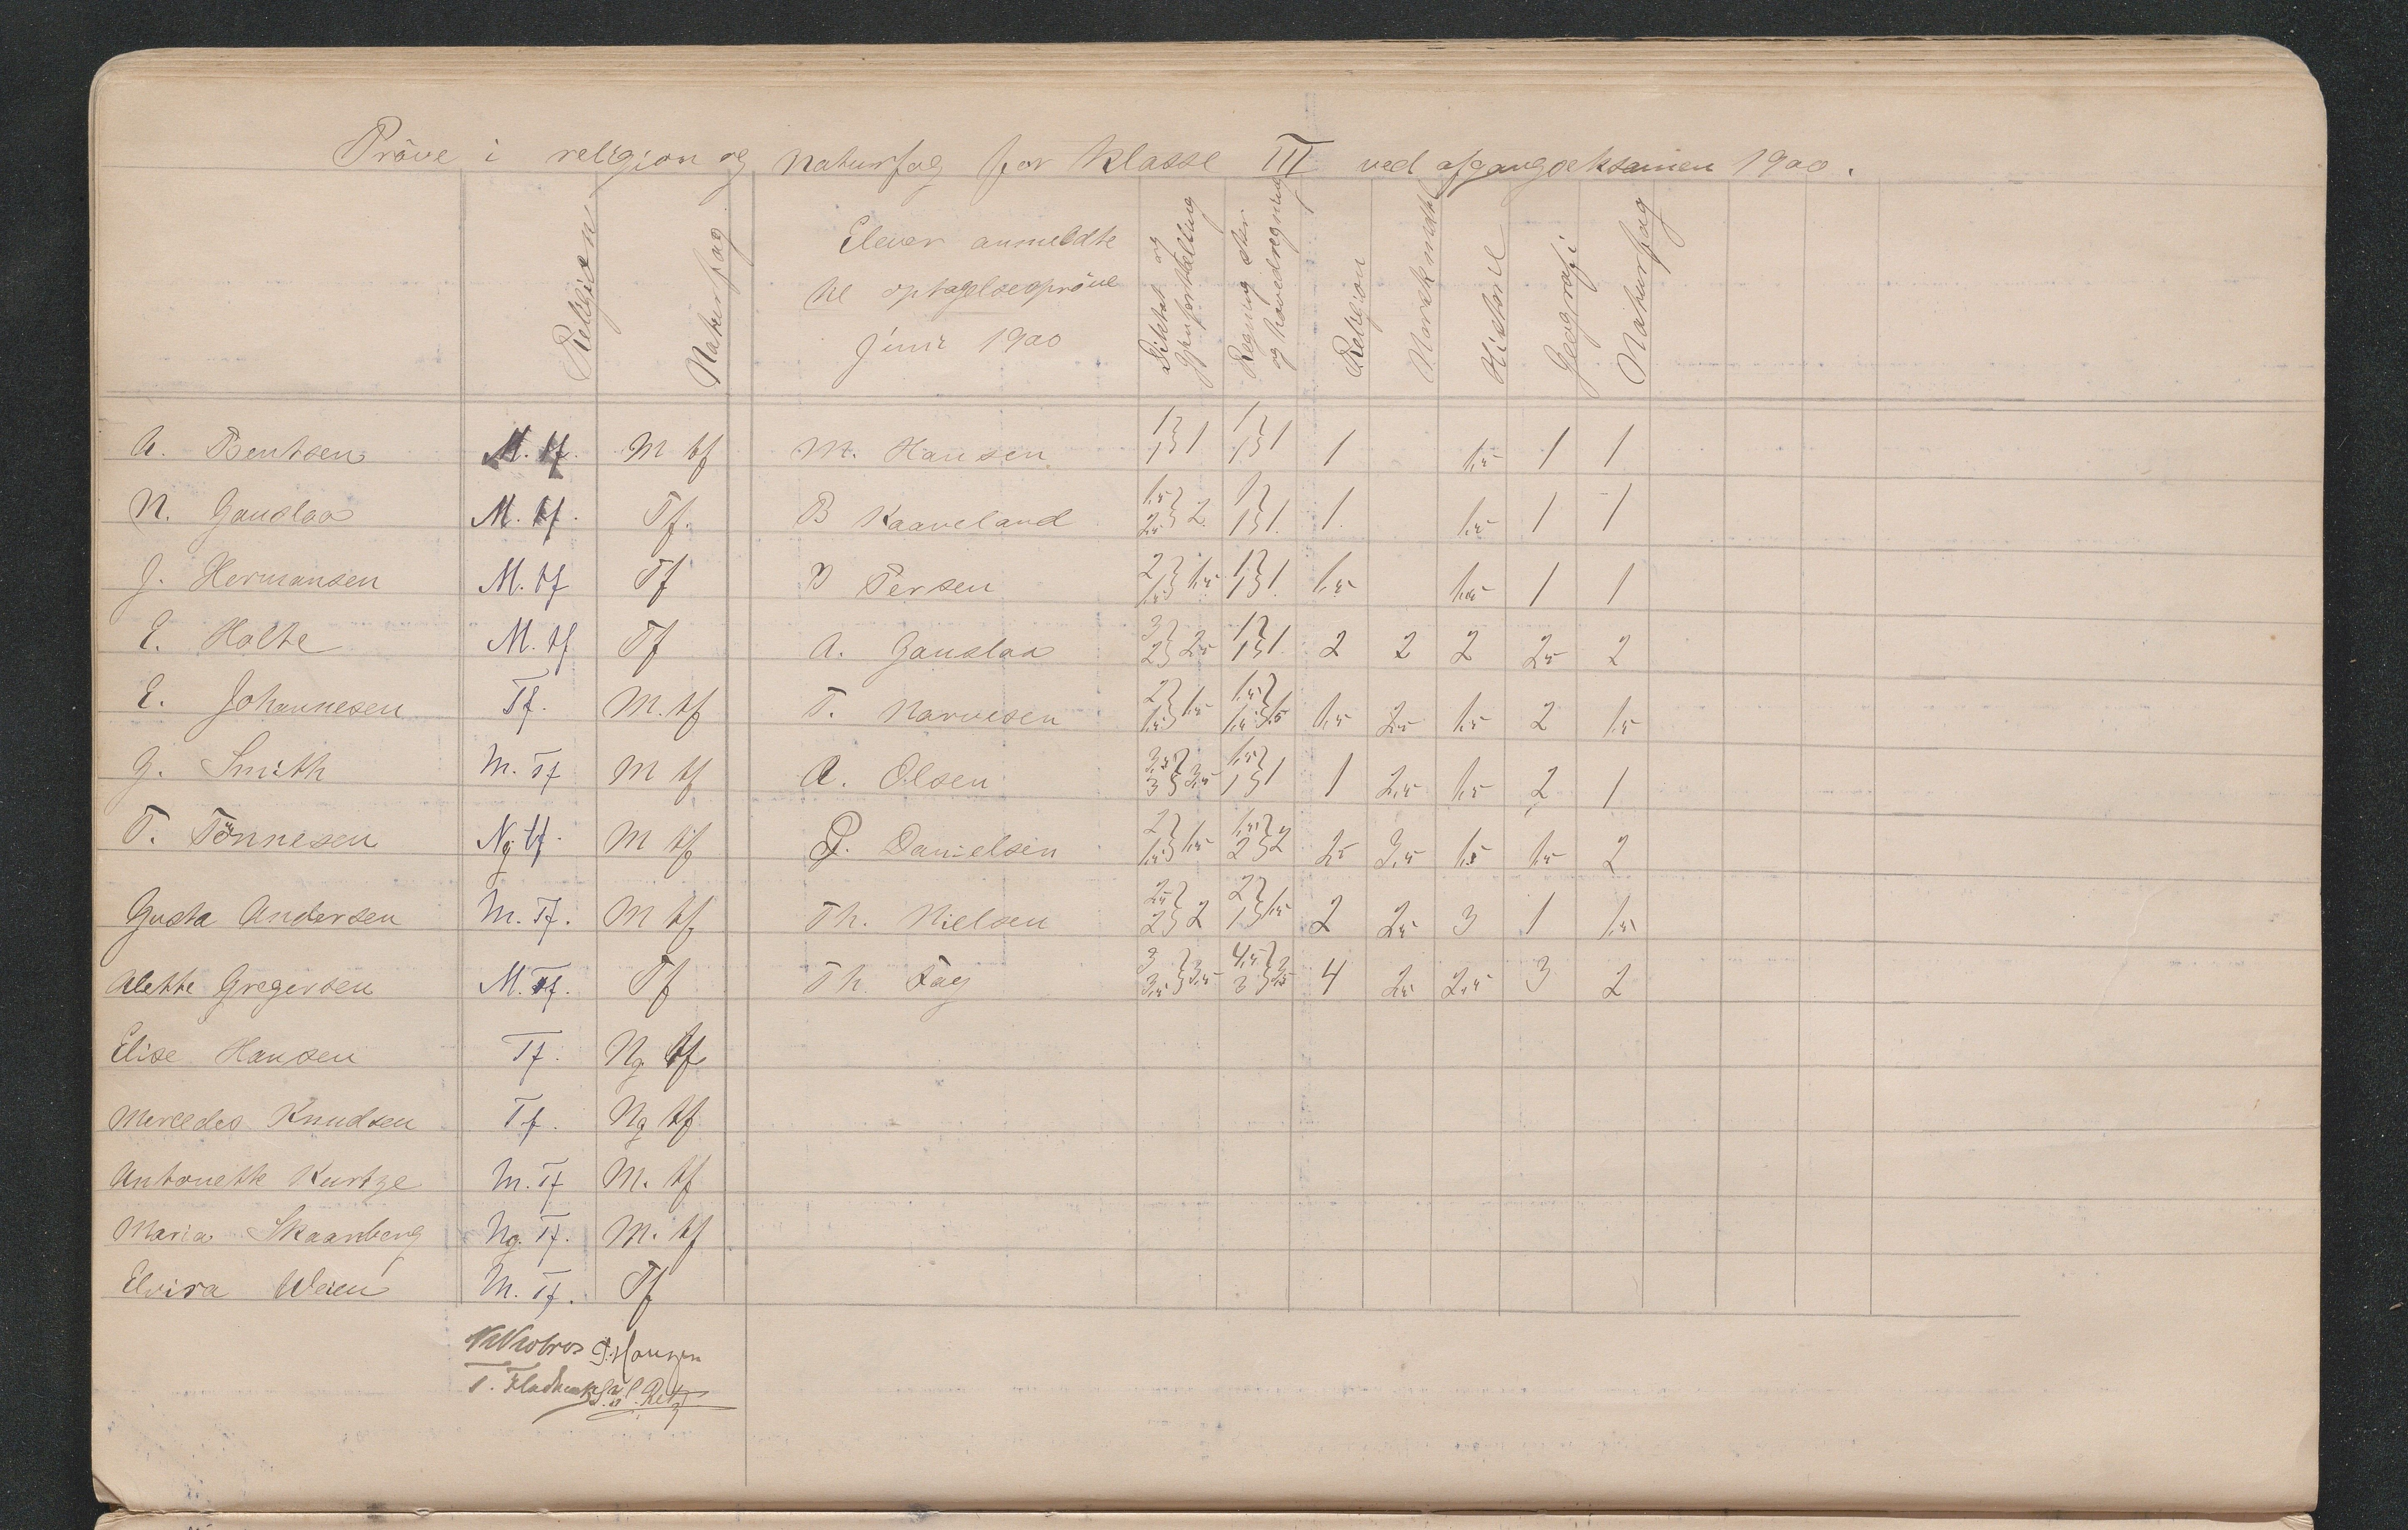 Pröve i religion og naturfag for klasse III ved afgangseksamen 1900.
Religion Naturfag
Elever anmeldte
til optagelsesprøve
Juni 1900
Diktat og Gjenfortælling Regning skr. og hovedregning Religion Norsk mundtl Historie Geografi Naturfag
A. Bentsen M. tf. M tf M. Hansen 1 1 1 1 1 1 1 1,5 1 1
N. Gauslaa M. tf. Tf. B Kaaveland 1,5 2,5 2 1 1 1. 1. 1,5 1 1
J. Hermansen M. tf Tf Persen 2 1,5 1,5 1 1 1. 1,5 1,5 1 1
E. Holte M. tf Tf A. Gauslaa 3 2 2,5 1 1 1. 2 2 2 2,5 2
E. Johannesen Tf. M. tf T. Narvesen 2 1,5 1,5 1,5 1,5 1,5 1,5 2,5 1,5 2 1,5
G. Smith M. Tf M tf A. Olsen 3,5 3 3,5 1,5 1 1 1 2,5 1,5 2 1
T. Tönnesen Ng tf. M tf P. Danielsen 2 1,5 1,5 1,5 2 2 2,5 3,5 1,5 1,5 2
Gusta Andersen M. Tf. M tf Th. Nielsen 2,5 2 2 2 1 1,5 2 2,5 3 1 1,5
Alette Gregersen M. Tf. Tf Th. Fay 3 3,5 3,5 4,5 3 4 2,5 2,5 3 2
Elise Hansen Tf. Ng. tf
Mercedes Knudsen Tf. Ng tf
Antonette Kurtze M. Tf M. tf
Maria Skaanberg Ng. Tf. M. tf
Elvira Weien M. Tf. Tf
Hansen
T.